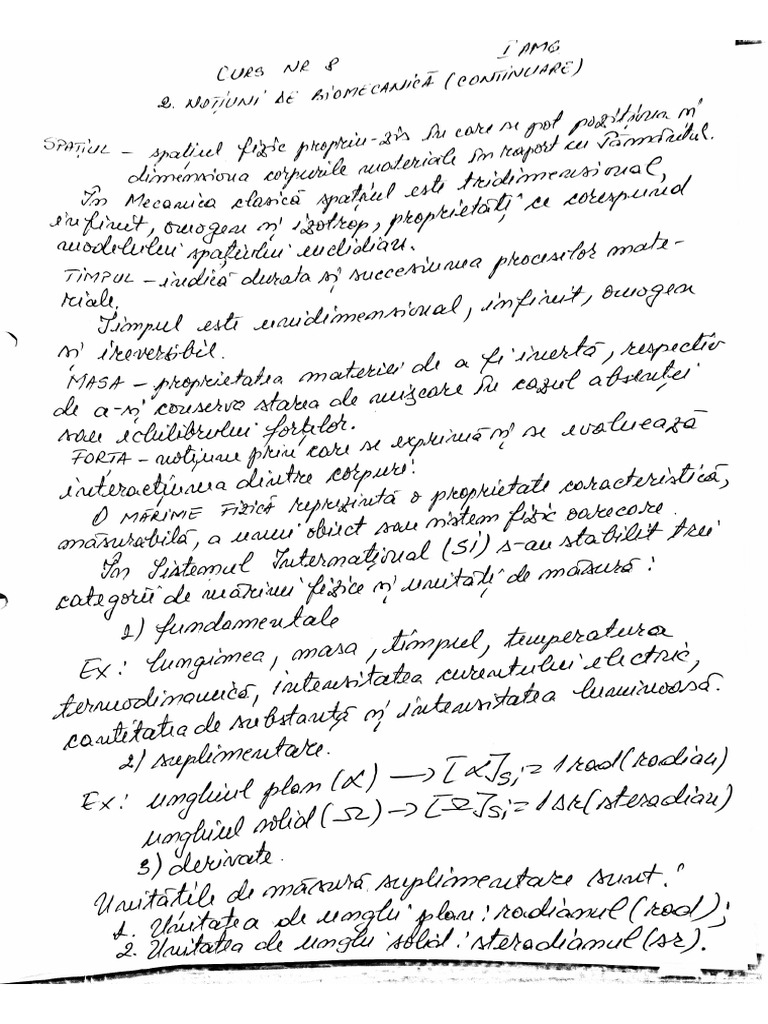 I AMG
CURS NR 8
2. NOȚIUNI DE BIOMECANICĂ (CONTINUARE)
SPAȚIUL – spațiul fizic propriu-zis în care se pot poziționa și
dimensiona corpurile materiale în raport cu Pământul.
În Mecanica clasică spațiul este tridimensional,
infinit, omogen și izotrop, proprietăți ce corespund
modelului spațiului euclidian.
TIMPUL – indică durata și succesiunea proceselor mate-
riale.
Timpul este unidimensional, infinit, omogen
și ireversibil.
MASA – proprietatea materiei de a fi inertă, respectiv
de a-și conserva starea de mișcare în cazul absenței
sau echilibrului forțelor.
FORȚA – noțiune prin care se exprimă și se evaluează
interacțiunea dintre corpuri.
O MĂRIME FIZICĂ reprezintă o proprietate caracteristică,
măsurabilă, a unui obiect sau sistem fizic oarecare.
În Sistemul Internațional (Si) s-au stabilit trei
categorii de mărimi fizice și unități de măsură:
1) fundamentale
Ex: lungimea, masa, timpul, temperatura
termodinamică, intensitatea curentului electric,
cantitatea de substanță și intensitatea luminoasă.
2) suplimentare.
Ex: unghiul plan (α) → [α]Si = 1 rad (radian)
unghiul solid (Ω) → [Ω]Si = 1 sr (steradian)
3) derivate.
Unitățile de măsură suplimentare sunt:
1. Unitatea de unghi plan: radianul (rad);
2. Unitatea de unghi solid: steradianul (sr).